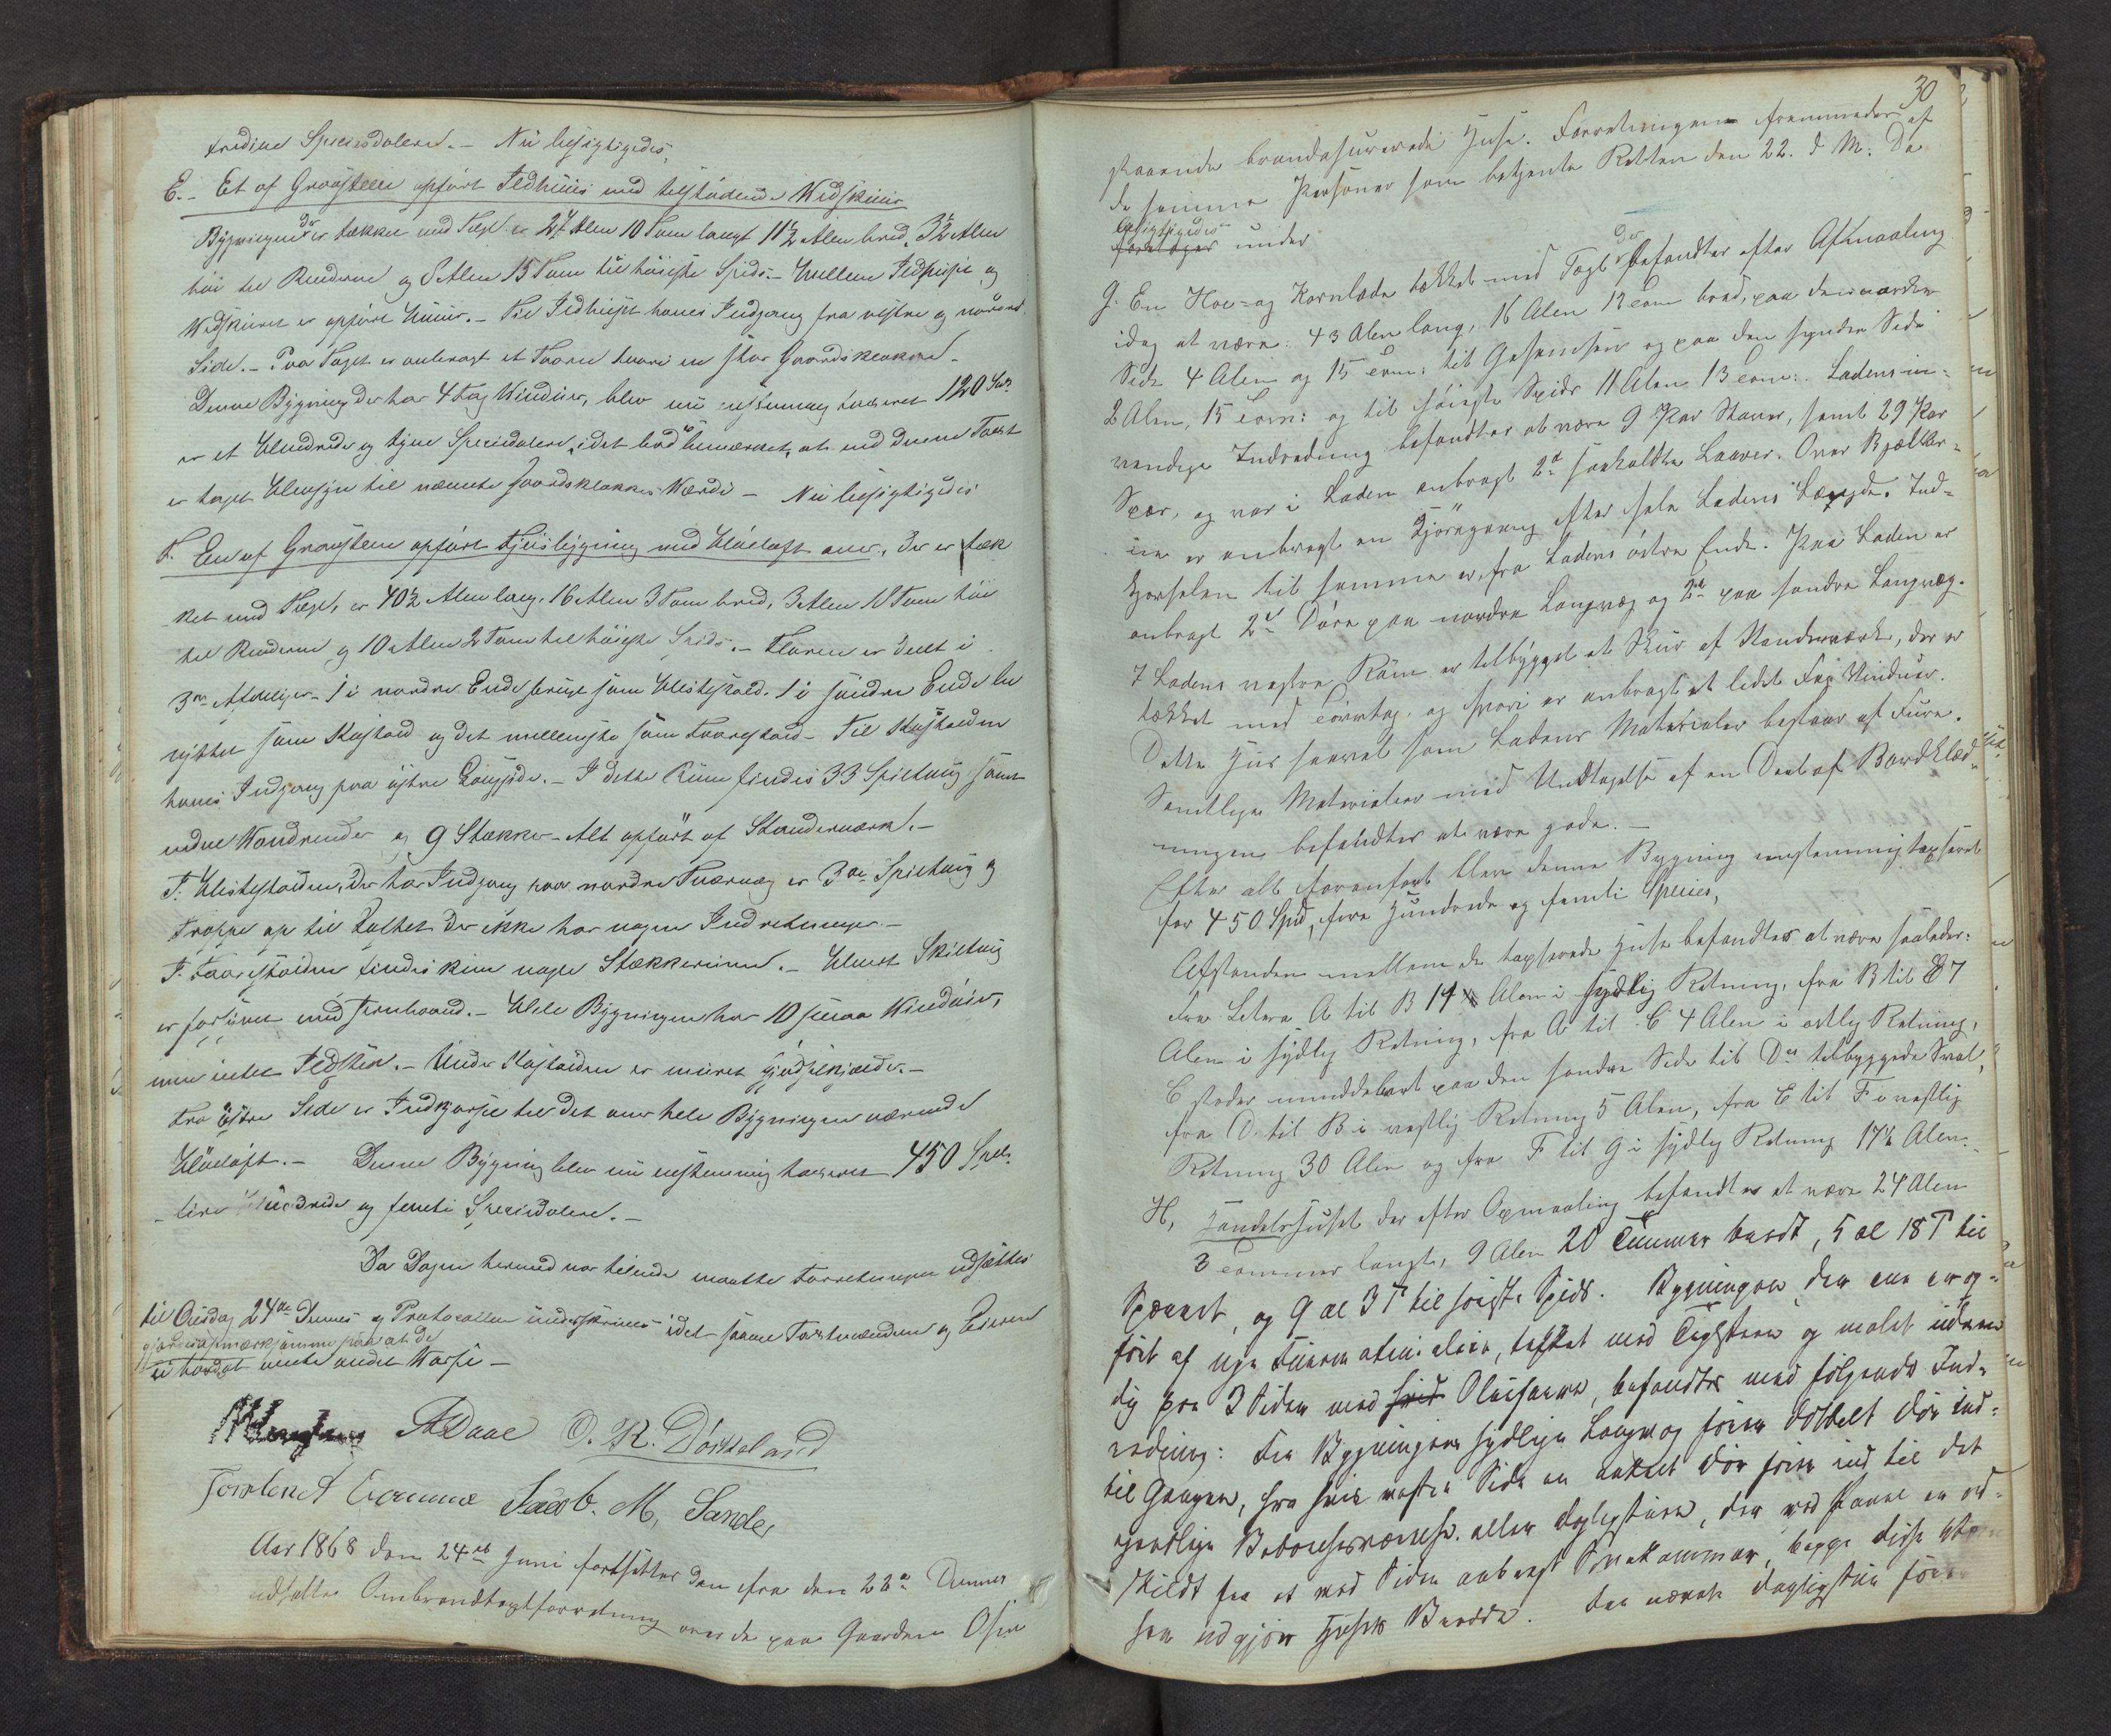 tredive Speciesdalere. – Nu besigtigedes,
E. – Et af Graasteen opført Ildhuus med tilstødende Wedskuur
Bygningen der er tækket med Tagl er 24 Alen 10 Tom langt 11½ Alen bred, 3½ Alen
høi til Renderne og 8 Alen 15 Tom til høieste Spids. – Mellem Ildhuset og
Wedskuret er opført Muur. – Til Ildhuset haves Indgang fra vestre og nordre
Side. – Paa Taget er anbragt et Taarn hvori en stor Gaardsklokke –
Denne Bygning der har 4 Fag Winduer, blev nu enstemmig taxeret 120 Spd
er et Hundrede og tyve Speciedalere, idet bad bemærket, at ved denne Taxt
er taget Hensyn til nævnte Gaardsklokkes Værdi – Nu besigtigedes
F. En af Graasteen opført Fjøsbygning med Høeloft over, der er tæk
ket med Tagl, er 40½ Alen lang, 16 Alen 3 Tom bred, 3 Alen 18 Tom høi
til Renderne og 10 Alen 2 Tom til høieste Spids. – Floren er deelt i
3de Afdelinger – 1 i nordre Ende bruges som Hestestald. 1 i søndre Ende be
nyttet som Kostald og det mellemste som Faarestald – Til Kostalden
haves Indgang paa østre Langside. – I dette Rum findes 33 Spiltaug samt
 og 9 Stækker – Alt opført af Standerværk. –
I Hestestalden, der har Indgang paa nordre Tværvæg er 3de Spiltaug og
Trappe op til Loftet der ikke har nogen Indretninger –
I Faarestalden findes kun nogle Stækkerum. – Hvert Skiltaug
er forsynet med Jernbaand. – Hele Bygningen har 10 smaa Winduer,
men intet Ildsted. – Under Kostalden er muret Gjødselkjælder. –
Fra østre Side er Indkjørsel til det over hele Bygningen værende
Høeloft. – Denne Bygning blev nu enstemmig taxeret 450 Spd.
– fire Hundrede og femti Speciedalere. –
Da Dagen hermed var tilende maatte Forretningen udsættes
til Onsdag 24de Dennes og Protocollen underskrives idet samme Taxtmændene og Eieren
gjøres opmærksomme paa at de
ei havde at vente andet Varsel –
ADaae O. K. Dørheland
Torsten A Jacob. M, Sande,
Aar 1868 den 24de Juni fortsattes den fra den 22de Dennes
udsatte Ombrandtaxtforretning over de paa Gaarden Osen
30
staaende brandassurerede Huse. Forretningen fremmedes af
de samme Personer som betjente Retten den 22. d. M. Da
besigtigedes
foretoges under
G. En Hoe- og Kornlade tækket med Tagl der befandtes efter Afmaaling
idag at være: 43 Alen lang, 16 Alen 12 Tom bred, paa den nordre
Side 4 Alen og 15 Tom: til Gesimsen og paa den søndre Side
2 Alen, 15 Tom: og til høieste Spids 11 Alen 13 Tom:. Ladens in-
vendige Indredning befandtes at være 9 Par Staver, samt 29 Par
Spær, og var i Laden anbragt 2de saakaldte Laaver. Over Bjælker-
ne er anbragt en Kjøregang efter hele Ladens Længde. Ind-
kjørselen til samme er fra Ladens østre Ende. Paa Laden er
anbragt 2de Døre paa nordre Langvæg og 2de paa søndre Langvæg.
I Ladens vestre Rum er tilbygget et Skur af Standerværk, der er
tækket med Torvtag, og hvori er anbragt et lidet Fag Vinduer.
Dette Huus saavel som Ladens Materialer bestaar af Furu.
Samtlige Materialier med Undtagelse af en Deel af Bordklæd-
ningen befandtes at være gode. –
Efter alt foranført blev denne Bygning enstemmig taxeret
for 450 Spd, fire Hundrede og femti Species,
Afstanden mellem de taxerede Huse befandtes at være saaledes:
Fra Litera A til B 14 Alen i sydlig Retning, fra B til E 7
Alen i sydlig Retning, fra A til C 4 Alen i østlig Retning,
C støder umiddelbart paa den søndre Side til Ds tilbyggede Sval,
fra D til B i vestlig Retning 5 Alen, fra E til F i vestlig
Retning 30 Alen og fra F til G i sydlig Retning 17½ Alen.
H, Handelshuset der efter Opmaaling befandtes at være 24 Alen
3 Tommer langt, 9 Alen 20 Tommer bredt, 5 al 18 T til
Spærret, og 9 al 3 T til høieste Spids. Bygningen, der er op-
ført af nye Furumaterialier, tækket med Teglsteen og malet udven
dig paa 3 Sider med hvid Oliefarve, befandtes med følgende Ind-
redning: Fra Bygningens sydlige Langvæg fører dobbelt Dør ind
til Gangen, fra hvis vestre Side en enkelt Dør fører ind til det
egentlige Beboelsesværelse eller Dagligstue, der ved Panel er ad-
skildt fra et ved Siden anbragt Sovekammer, begge disse
 udgjør Husets Bredde. Fra nævnte Dagligstue fører